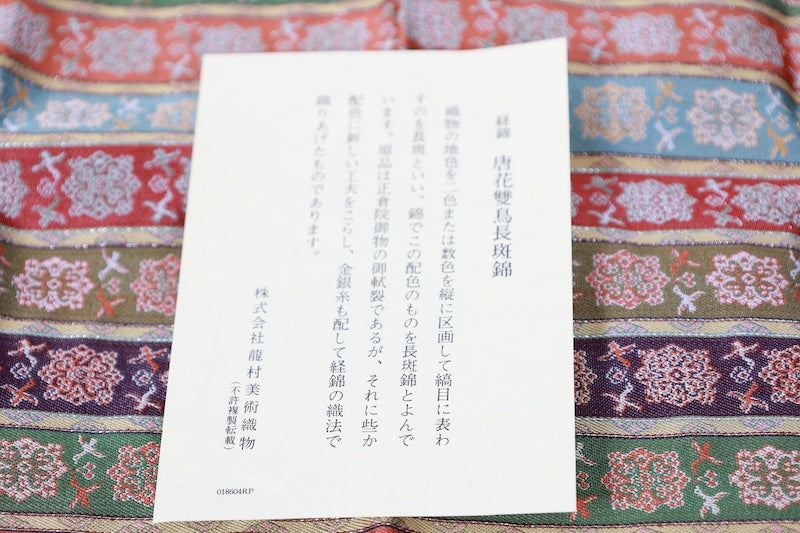 経錦　唐花雙鳥長斑錦
織物の地色を二色または数色を縦に区画して縞目に表わ
すのを長斑といい、錦でこの配色のものを長斑錦とよんで
います。原品は正倉院御物の御軾裂であるが、それに些か
配色に新しい工夫をこらし、金銀糸も配して経錦の織法で
織りあげたものであります。
株式会社龍村美術織物
（不許複製転載）
018604RP